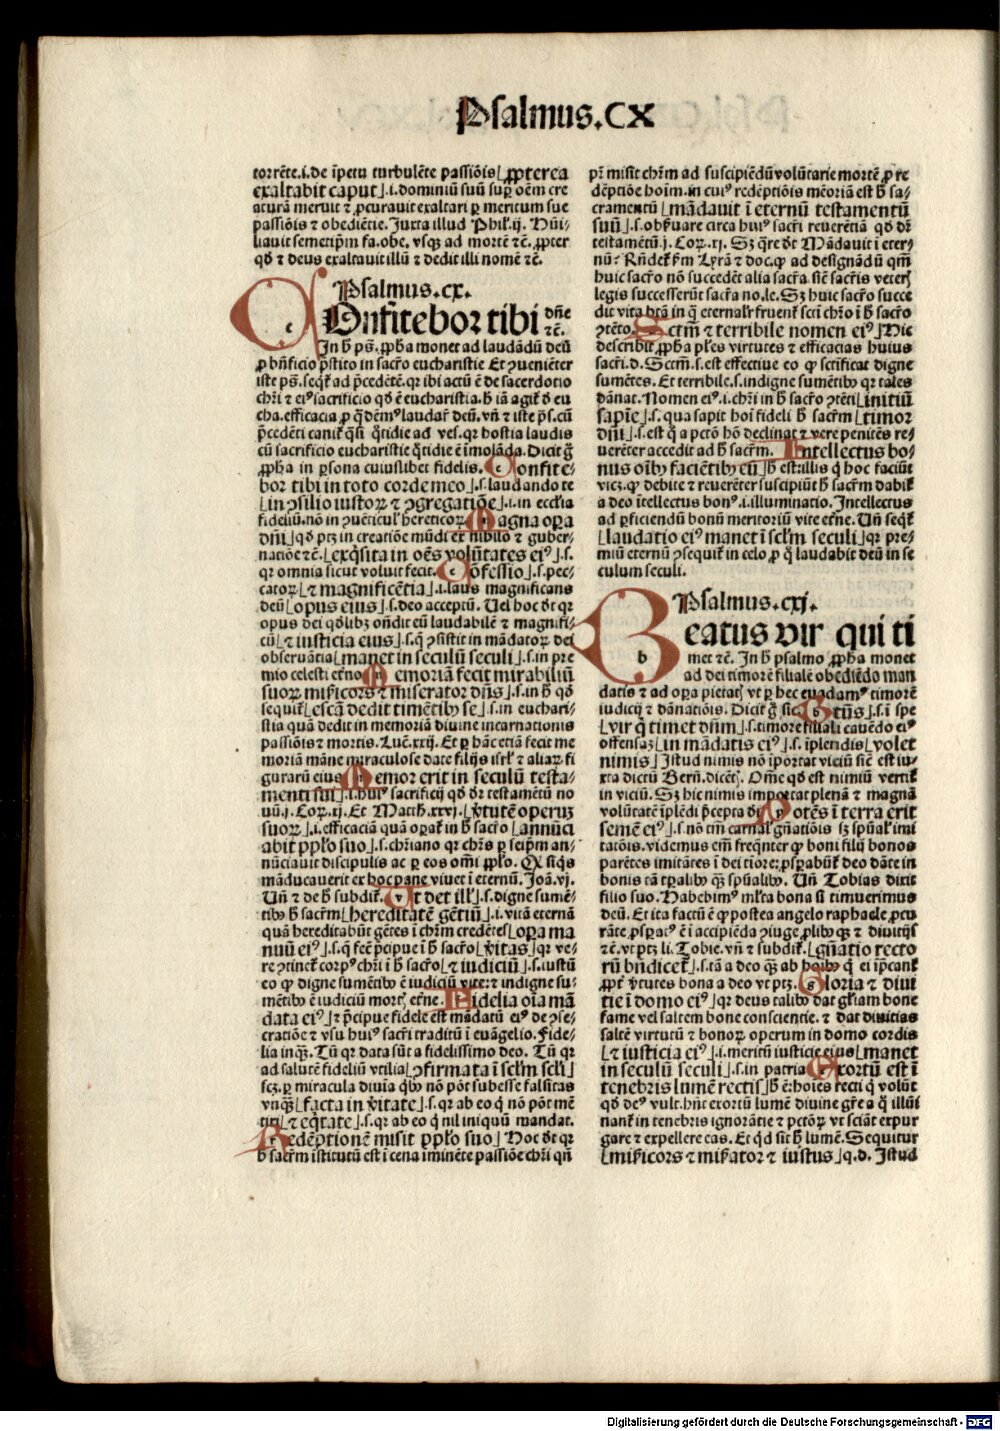 Psalmus.CX
torrẽte.i.de ĩpetu turbulẽte passiõis ⌊ꝓpterea
exaltabit caput⌋.i.dominiũ suũ suꝑ oẽm cre
aturã meruit ⁊ ꝓcurauit exaltari ꝑ meritum sue
passiõis ⁊ obediẽtie. Juxta illud Phil'.ij. Hũi/
liauit semetip̃m fa.obe. vsqꝫ ad mortẽ ⁊c̃. ꝓpter
qđ ⁊ deus exaltauit illũ ⁊ dedit illi nomẽ ⁊c̃.
Psalmus.cx.
COnfitebor tibi dñe
⁊c̃.
In ħ ps̃. ꝓpħa monet ad laudãdũ deũ
ꝓ bñficio p̃stito in sacr̃o eucharistie Et ꝯueniẽter
iste ps̃. seqt̃ ad p̃cedẽtẽ. qꝛ ibi actũ ẽ de sacerdotio
chr̃i ⁊ eiꝰ sacrificio qđ ẽ eucharistia. ħ iã agit̃ đ eu
cha. efficacia ꝓ q̃ dẽmꝰ laudar̃ deũ. vñ ⁊ iste p̃s. cũ
p̃cedẽti canit̃ q̃si q̃tidie ad ves. qꝛ hostia laudis
cũ sacrificio eucharistie q̃tidie ẽ imolãda. Dicit g̃
ꝓpħa in ꝑsona cuiuslibet fidelis. Confite/
bor tibi in toto corde meo⌋.s. laudando te
⌊in ꝯsilio iustoꝝ ⁊ ꝯgregatiõe⌋.i. in eccl'ia
fideliũ. nõ in ꝯuẽticul' hereticoꝝ. Magna oꝑa
dñi⌋ qđ ptꝫ in creatiõe mũdi ex nihilo ⁊ guber/
natiõe ⁊c̃. ⌊exq̃sita in oẽs volũtates eiꝰ⌋.s.
qꝛ omnia sicut voluit fecit. Cõfessio⌋.s. pec/
catoꝝ ⌊⁊ magnificẽtia⌋.i. laus magnificans
deũ ⌊opus eius⌋.s. deo acceptũ. Uel hoc đt qꝛ
opus dei qđlibꝫ oñdit eũ laudabilẽ ⁊ magnifi/
cũ ⌊⁊ iusticia eius⌋.s. q̃ ꝯsistit in mãdatoꝝ dei
obseruãtia ⌊manet in seculũ seculi⌋.s. in pre
mio celesti et̃no Memoriam fecit mirabiliũ
suoꝝ mis̃icors ⁊ miserator dñs⌋.s. in ħ qđ
sequit̃ ⌊escã dedit timẽtibꝰ se⌋.s. in euchari/
stia quã dedit in memoriã diuine incarnationis
passiõis ⁊ mortis. Luc̃.xxij. Et ꝑ hãc etiã fecit me
moriã mãne miraculose date filijs isrl' ⁊ aliaꝝ fi
gurarũ eius Memor erit in seculũ testa/
menti sui⌋.i. huiꝰ sacrificij qđ đr testamẽtũ no
uũ.j. Coꝝ.xj. Et Matth.xxvi. ⌊ṽtutẽ operuꝫ
suoꝝ⌋.i. efficaciã quã oꝑat̃ in ħ sacr̃o ⌊annũci
abit ppl'o suo⌋.s. chr̃iano qꝛ chr̃s ꝑ seip̃m an/
nũciauit discipulis ac ꝑ eos om̃i ppl'o. Qꝫ siq̃s
mãducauerit ex hoc pane viuet i eternũ. Joã.vj.
Uñ ⁊ de ħ subdit̃. Ut det ill'⌋.s. digne sumẽ/
tibꝰ ħ sacr̃m ⌊hereditatẽ gẽtiũ⌋.i. vitã eternã
quã hereditabũt gẽtes i chr̃m credẽtes ⌊oꝑa ma
nuũ eiꝰ⌋.s. q̃ fec̃ p̃cipue i ħ sacr̃o ⌊ṽitas⌋ qꝛ ve/
re ꝯtinet̃ corpꝰ chr̃i i ħ sacr̃o ⌊⁊ iudiciũ⌋.s. iustũ
eo ꝙ digne sumẽtibꝰ ẽ iudiciũ vite: ⁊ indigne su/
mẽtibꝰ ẽ iudiciũ mortꝭ et̃ne. Fidelia oĩa mã
data eiꝰ⌋ ⁊ p̃cipue fidele est mãdatũ eiꝰ de ꝯse/
cratiõe ⁊ vsu huiꝰ sacr̃i traditũ i euãgelio. Fide/
lia inqꝫ. Tũ qꝛ data sũt a fidelissimo deo. Tũ qꝛ
ad salutẽ fideliũ vtilia ⌊ꝯfirmata i scl'm scl'i⌋
scꝫ. ꝑ miracula diuĩa qͥbꝰ nõ põt subesse falsitas
vnqꝫ ⌊facta in ṽitate⌋.s. qꝛ ab eo q̃ nõ põt mẽ
tiri ⌊⁊ eq̃tate⌋.s. qꝛ ab eo q̃ nil iniquũ mandat.
Redẽptionẽ misit ppl'o suo⌋ Hoc đt qꝛ
ħ sacr̃m ĩstitutũ est i cena ĩminẽte passiõe chr̃i qñ
pr̃ misit chr̃m ad suscipiẽdũ volũtarie mortẽ ꝓ re
dẽptiõe hoĩm. in cuiꝰ redẽptiõis mẽoriã est ħ sa/
cramentũ ⌊mãdauit ĩ eternũ testamentũ
suũ⌋.s. obs̃uare circa huiꝰ sacr̃i reuerẽtiã qđ đr̃
testamẽtũ.j. Coꝝ.xj. Sꝫ q̃re đt Mãdauit i eter/
nũ: Rñdet̃ s̃m Lyrã ⁊ doc. ꝙ ad designãdũ qm̃
huic sacr̃o nõ succedẽt alia sacr̃a. sic̃ sacr̃is veterꝭ
legis successerũt sacr̃a no. le. Sꝫ huic sacr̃o succe
dit vita btã in q̃ eternal'r fruent̃ scti chr̃o i ħ sacr̃o
ꝯtẽto. Sctm̃ ⁊ terribile nomen eiꝰ⌋ Hic
describit ꝓpħa pl'es virtutes ⁊ efficacias huius
sacr̃i. đ. Sctm̃.s. est effectiue eo ꝙ sctificat digne
sumẽtes. Et terribile.s. indigne sumẽtibꝰ qꝛ tales
dãnat. Nomen eiꝰ.i. chr̃i in ħ sacr̃o ꝯtẽti ⌊initiũ
sapiẽ⌋.s. qua sapit hoĩ fideli ħ sacr̃m ⌊timor
dñi⌋.s. est q̃ a pctõ hõ declinat ⁊ vere penitẽs re/
uerẽter accedit ad ħ sacr̃m. Intellectus bo/
nus oĩbꝰ faciẽtibꝰ eũ⌋ ħ est: illis q̃ hoc faciũt
vicꝫ. ꝙ debite ⁊ reuerẽter suscipiũt ħ sacr̃m dabit̃
a deo ĩtellectus bonꝰ.i. illuminatio. Intellectus
ad ꝑficiendũ bonũ meritoriũ vite et̃ne. Uñ seqt̃
⌊laudatio eiꝰ manet i scl'm seculi⌋ qꝛ pre/
miũ eternũ ꝯsequit̃ in celo ꝓ q̃ laudabit deũ in se
culum seculi.
Psalmus.cxj.
BEatus vir qui ti
met ⁊c̃. In ħ psalmo ꝓpħa monet
ad dei timorẽ filialẽ obediẽdo man
datis ⁊ ad oꝑa pietatꝭ vt ꝑ hec euadamꝰ timorẽ
iudicij ⁊ dãnatiõis. Dicit g̃ sic Btũs⌋.s. i spe
⌊vir q̃ timet dñm⌋.s. timore filiali cauẽdo eiꝰ
offensaꝫ ⌊in mãdatis eiꝰ⌋.s. ĩplendis ⌊volet
nimis⌋ Istud nimis nõ ĩportat viciũ sic̃ est iu/
xta dictũ Bern̄. dicẽtꝭ. Om̃e qđ est nimiũ vertit̃
in viciũ. Sꝫ hic nimis importat plenã ⁊ magnã
volũtatẽ ĩplẽdi p̃cepta dei Potẽs i terra erit
semẽ eiꝰ⌋.s. nõ tm̃ carnal' gñatiõis sꝫ spũal' imi
tatõis. videmus em̃ freq̃nter ꝙ boni filij bonos
parẽtes imitãtes i dei tiõre: ꝓsꝑabũt̃ deo dãte in
bonis tã tꝑalibꝰ qꝫ spũalibꝰ. Uñ Tobias dixit
filio suo. Habebimꝰ ml'ta bona si timuerimus
deũ. Et ita factũ ẽ ꝙ postea angelo raphaele ꝓcu
rãte. ꝓsꝑatꝰ ẽ i accipiẽda ꝯiuge ꝓlibꝰqꝫ ⁊ diuitijs
⁊c̃. vt ptꝫ li. Tobie. vñ ⁊ subdit̃. ⌊gñatio recto
rũ bñdicet̃⌋.s. tã a deo qꝫ ab hoĩbꝰ q̃ ei ip̃cant̃
ꝓpt̃ ṽtutes bona a deo vt ptꝫ. Gloria ⁊ diui
tie i domo eiꝰ⌋ qꝛ deus talibꝰ dat gl'iam bone
fame vel saltem bone conscientie. ⁊ dat diuitias
saltẽ virtutũ ⁊ bonoꝝ operum in domo cordis
⌊⁊ iusticia eiꝰ⌋.i. meritũ iusticie eius ⌊manet
in seculũ seculi⌋.s. in patria Exortũ est i
tenebris lumẽ rectis⌋ ħ ẽ: hoĩes recti q̃ volũt
qđ deꝰ vult. hñt exortũ lumẽ diuine gr̃e a q̃ illũi
nant̃ in tenebris ignorãtie ⁊ pctõꝝ vt sciãt expur
gare ⁊ expellere eas. Et q̃d sit ħ lumẽ. Sequitur
⌊mis̃icors ⁊ mis̃ator ⁊ iustus⌋ q.d. Istud
Digitalisierung gefördert durch die Deutsche Forschungsgemeinschaft - DFG